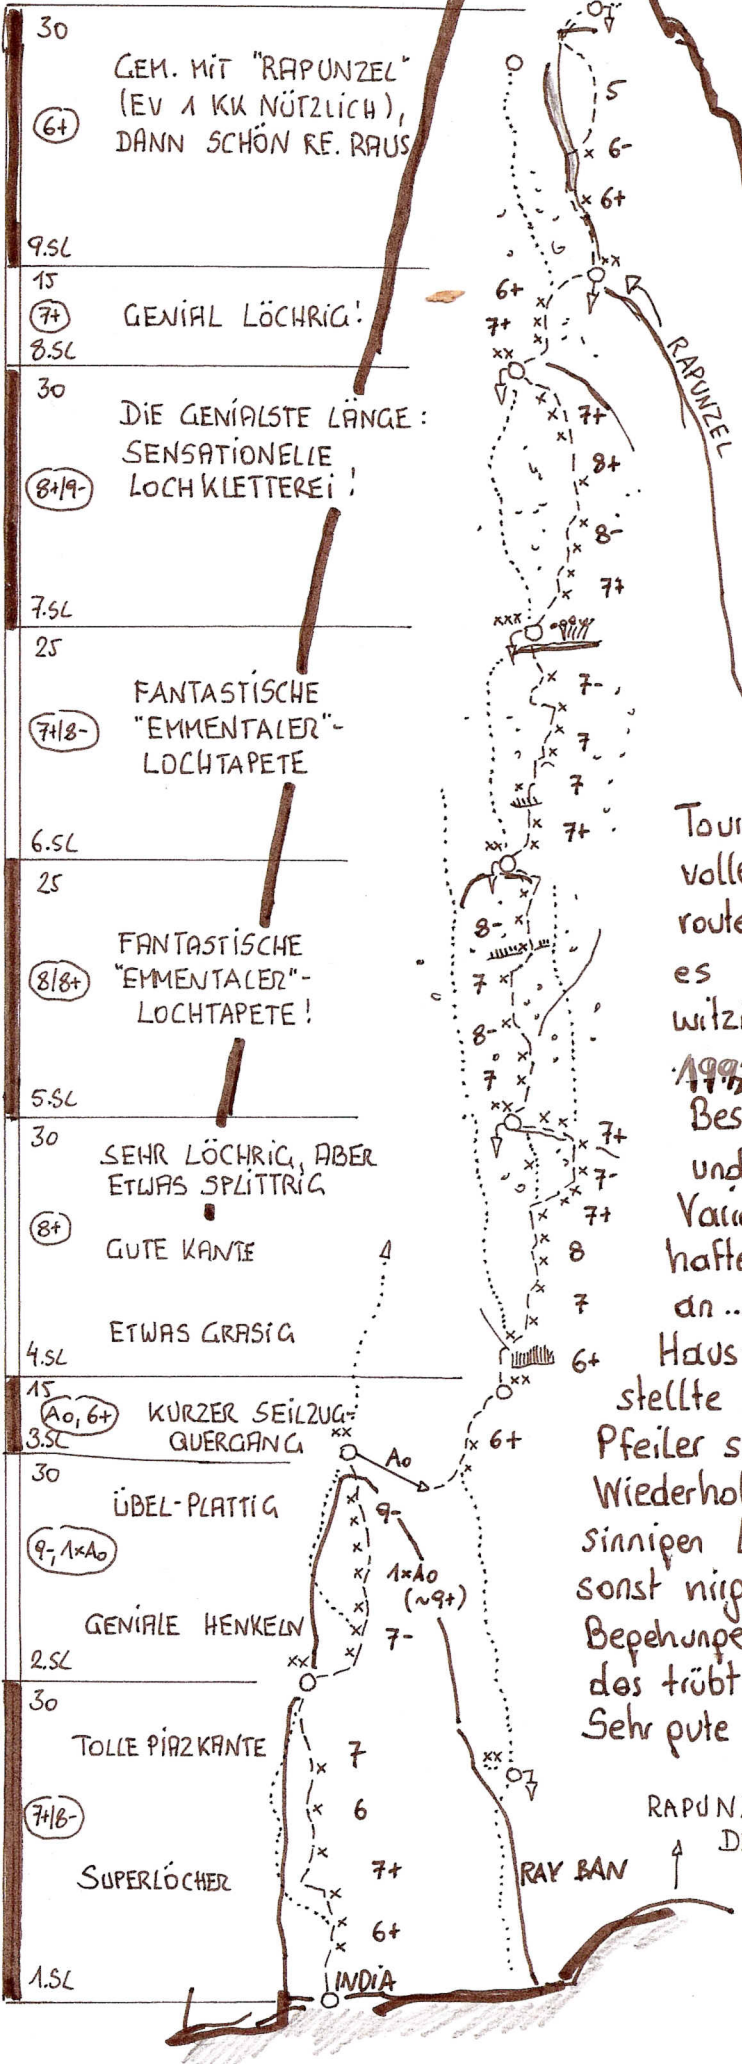 30
GEM. MIT "RAPUNZEL"
(EV 1 KK NÜTZLICH),
DANN SCHÖN RE. RAUS
6+
9.SL
5
6-
6+
15
7+
GENIAL LÖCHRIG!
8.SL
6+
7+
RAPUNZEL
30
DIE GENIALSTE LÄNGE:
SENSATIONELLE
LOCHKLETTEREI!
8+/9-
7.SL
7+
8+
8-
7+
25
FANTASTISCHE
"EMMENTALER"-
LOCHTAPETE
7+/8-
6.SL
7-
7
7
7+
25
FANTASTISCHE
"EMMENTALER"-
LOCHTAPETE!
8/8+
5.SL
8-
7
8-
7
30
SEHR LÖCHRIG, ABER
ETWAS SPLITTRIG
8+
GUTE KANTE
ETWAS GRASIG
4.SL
7+
7-
7+
8
7
6+
15
A0, 6+
KURZER SEILZUG-
QUERGANG
3.SL
A0
6+
30
ÜBEL-PLATTIG
9-, 1xA0
GENIALE HENKELN
2.SL
9-
1xA0
(~9+)
7-
30
TOLLE PIAZKANTE
7+/8-
SUPERLÖCHER
1.SL
7
6
7+
6+
INDIA
RAY BAN
Tour
volle
route
es
witzi
Bes
und
hafte
an ..
Haus
stellte
Pfeiler s
Wiederhol
sinnigen
sonst nirg
Begehunge
das trübt
Sehr gute
RAPUN
D